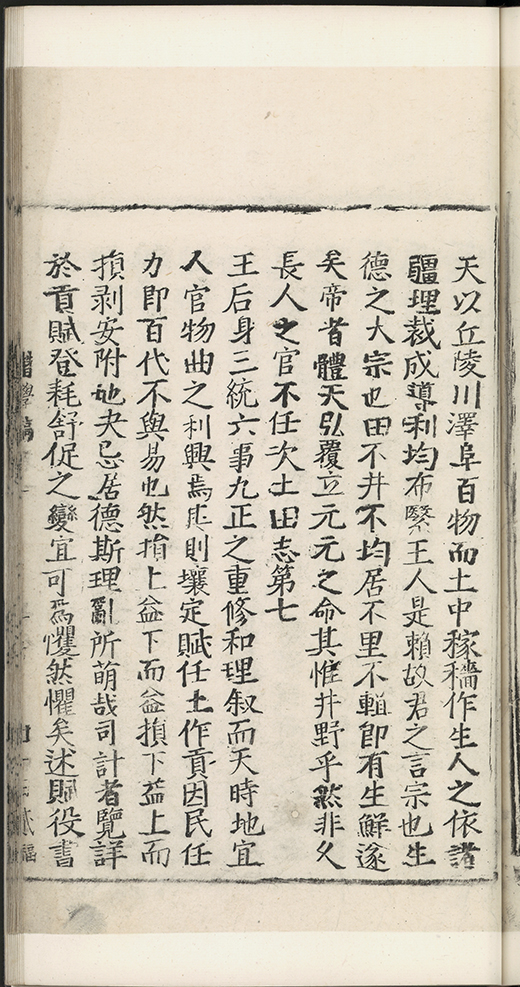 天以丘陵川澤阜百物而土中稼穡作生人之依諸
疆理裁成導利均布繄王人是賴故君之言宗也生
德之大宗也田不井不均居不里不輯即有生鮮遂
矣帝者體天弘覆立元元之命其惟井野乎然非久
長人之官不任次土田志第七
王后身三統六事九正之重修和理叙而天時地宜
人官物曲之利興焉則壤定賦任土作貢因民任
力即百代不與易也然損上益下而益損下益上而
損剥安附也夫忌居德斯理亂所萌哉司計者覽詳
於貢賦登耗舒促之變宜可爲懼然懼矣述賦役書